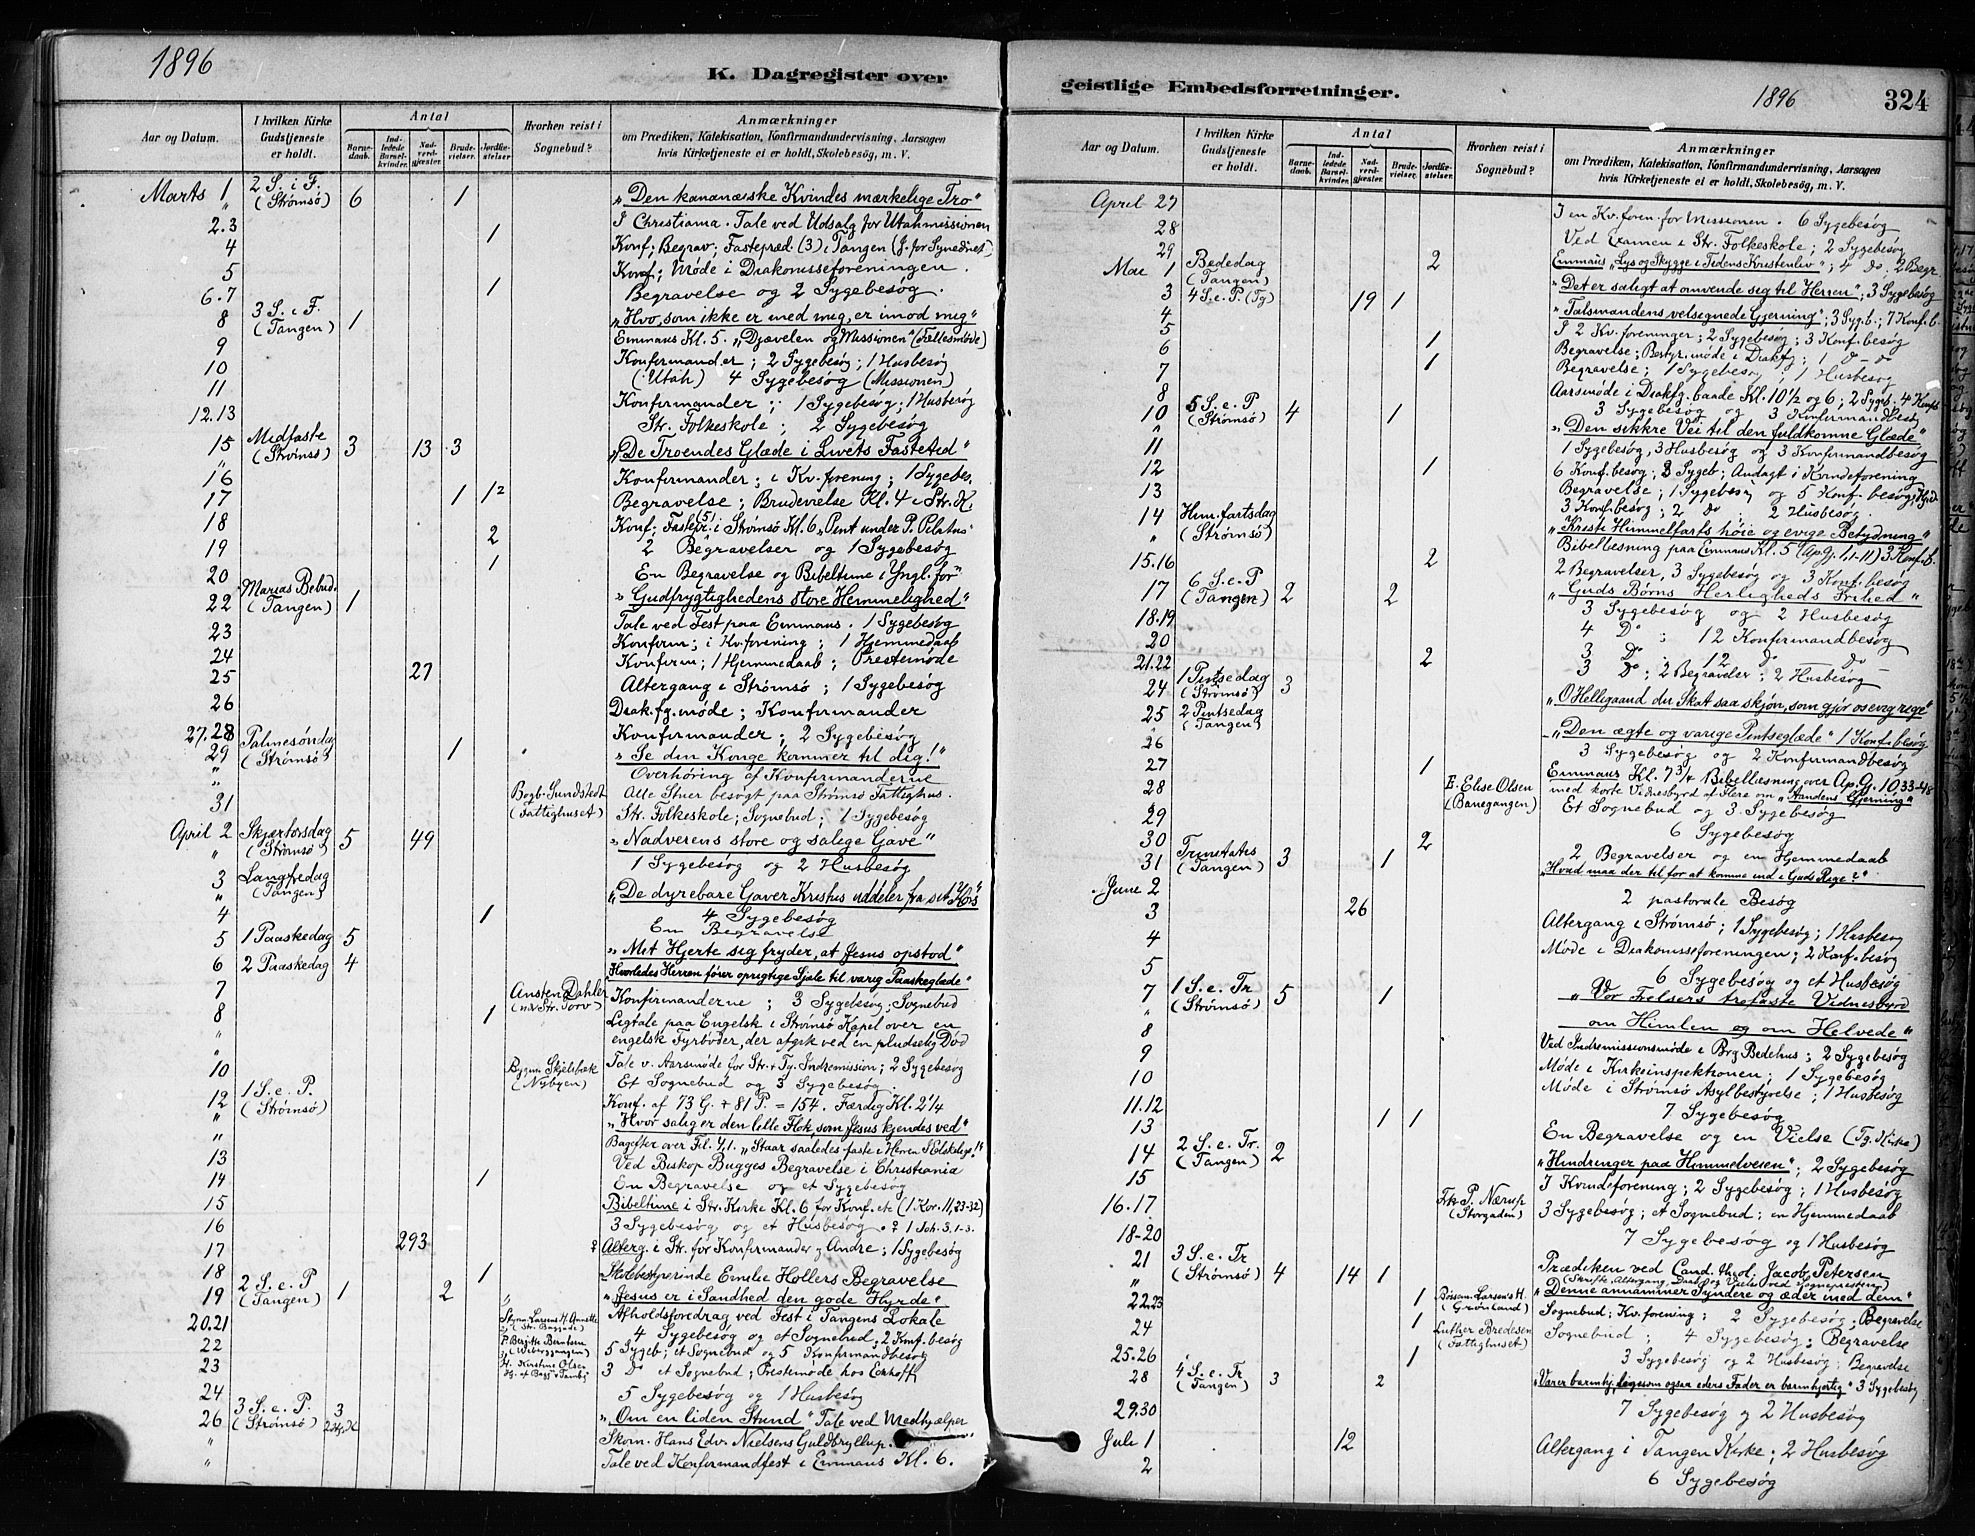 1896
K. Dagregister over
Aar og Datum.
I hvilken Kirke Gudstjeneste er holdt.
Antal
Barnedaab.
Indledede Barselkvinder.
Nadverdgjester.
Brudevielser.
Jordfæstelser.
Hvorhen reist i Sognebud?
Anmærkninger
om Prædiken, Katekisation, Konfirmandundervisning, Aarsagen
hvis Kirketjeneste ei er holdt, Skolebesøg, m. V.
Marts 1 2 S. i F. (Strømsø) 6 1 „Den kananæiske Kvindes mærkelige Tro"
" I Christiania. Tale ved Udsalg for Utahmissionen
2.3 1 Konf; Begrav; Fastepræd. (3) i Tangen (J. for Synedriet)
4 Konf; Møde i Diakonisseforeningen.
5 1 Begravelse og 2 Sygebesøg.
6.7
8 3 S. i F. (Tangen) 1 „Hvo, som ikke er med mig, er imod mig"
Emmaus Kl. 5. „Djævelen og Missionen" (Fællesmøde)
9 Konfirmander; 2 Sygebesøg; 1 Husbesøg
10 (Utah) 4 Sygebesøg (Missionen)
11 Konfirmander; 1 Sygebesøg; 1 Husbesøg
12.13 Str. Folkeskole; 2 Sygebesøg
15 Midfaste (Strømsø) 3 13 3 „De Troendes Glæde i Livets Fastetid"
" Konfirmander; i Kv. forening; 1 Sygebes.
16
17 1 1 2 Begravelse; Brudevielse Kl. 4 i Str. K.
18 Konf; Fastepr. (5) i Strømsø Kl. 6 „Pint under P. Pilatus"
19 2 2 Begravelser og 1 Sygebesøg
20 1 En Begravelse og Bibeltime i Yngl. for"
22 Marias Bebud. (Tangen) 1 „Gudfrygtighedens store Hemmelighed"
Tale ved Fest paa Emmaus. 1 Sygebesøg
23 Konfirm; i Kv. forening; 1 Hjemmedaab
24 Konfirm; 1 Hjemmedaab; Prestemøde
25 27 Altergang i Strømsø; 1 Sygebesøg
26 Diak. fg. møde; Konfirmander
27.28 Konfirmander; 2 Sygebesøg
29 Palmesøndag (Strømsø) 1 „Se din Konge kommer til dig!"
" Overhøring af Konfirmanderne
" Bogb. Sundstedt (Fattighuset) Alle Stuer besøgt paa Strømsø Fattighus.
31 Str. Folkeskole; Sognebud; 1 Sygebesøg
April 2 Skjærtorsdag (Strømsø) 5 49 „Nadverens store og salige Gave"
" 1 Sygebesøg og 2 Husbesøg
3 Langfredag (Tangen) „De dyrebare Gaver Kristus uddeler fra sit Kors"
" 4 Sygebesøg
4 1 En Begravelse
5 1 Paaskedag 5 „Mit Hjerte sig fryder, at Jesus opstod"
6 2 Paaskedag 4 Hvorledes Herren fører oprigtige Sjæle til varig Paaskeglæde"
7 Ansten Dahler (ved Str. Torv) Konfirmanderne; 3 Sygebesøg; Sognebud
8 1 Ligtale paa Engelsk i Strømsø Kapel over en
engelsk Fyrbøder, der afgik ved en pludselig Død
10 Bygm. Skjelsbæk (Nybyen) Tale v. Aarsmøde for Str. + Tg. Indremission; 2 Sygebesøg
Et Sognebud og 3 Sygebesøg.
12 1 S. e. P. (Strømsø) Konf. af 73 G. + 81 P. = 154. Færdig Kl. 2 1/4
" „Hvor salig er den lille Flok, som Jesus kjendes ved"
" Bagefter over Fil. 4,1. „Staar saaledes faste i Herren I Elskelige!"
13 Ved Biskop Bugges Begravelse i Christiania
14 1 En Begravelse og et Sygebesøg
15 Bibeltime i Str. Kirke Kl. 6 for Konf. etc (1 Kor. 11, 23-32)
16 3 Sygebesøg og et Husbesøg. 1 Joh. 3. 1-3.
17 293 Alterg. i Str. for Konfirmander og Andre; 1 Sygebesøg
18 1 Skolebestyrerinde Emilie Hollers Begravelse
19 2 S. e. P (Tangen) 1 2 „Jesus er i Sandhed den gode Hyrde"
" Afholdsforedrag ved Fest i Tangens Lokale
20.21 4 Sygebesøg og et Sognebud; 2 Konf. besøg
22 P. Birgitte Berntsen 5 Sygeb; et Sognebud og 5 Konfirmandbesøg
23 H. Kirstine Olsen 3 Do et Sognebud; Prestemøde hos Eckhoff
24 5 Sygebesøg og 1 Husbesøg
26 3 S. e. P. (Strømsø) 3 „Om en liden Stund" Tale ved Medhjælper
" Skom. Hans Edv. Nielsens Guldbryllup.
" Tale ved Konfirmandfest i Emmaus Kl. 6.
geistlige Embedsforretninger.
1896
324
Aar og Datum.
I hvilken Kirke Gudstjeneste er holdt.
Antal
Barnedaab.
Indledede Barselkvinder.
Nadverdgjester.
Brudevielser.
Jordfæstelser.
Hvorhen reist i Sognebud?
Anmærkninger
om Prædiken, Katekisation, Konfirmandundervisning, Aarsagen
hvis Kirketjeneste ei er holdt, Skolebesøg, m. V.
April 27 I en Kv. foren. for Missionen. 6 Sygebesøg
28 Ved Examen i Str. Folkeskole; 2 Sygebesøg
29 2 Emmaus „Lys og Skygge i Tidens Kristenliv"; 4 do. 2 Begr.
Mai 1 Bededag (Tangen) „Det er saligt at omvende sig til Herren"; 3 Sygebesøg
3 4 S. e. P. (Tg) 19 1 „Talsmandens velsignede Gjerning"; 3 Syg.b.; 7 Konf. b.
4 I 2 Kv. foreninger; 2 Sygebesøg; 3 Konf. besøg
5 1 Begravelse; Bestyr. møde i Diakfg; 1 do - do
6 1 Begravelse; 1 Sygebesøg; 1 Husbesøg
7 Aarsmøde i Diakfg. baade Kl. 10 1/2 og 6; 2 Sygeb. 4 Konfb
8 3 Sygebesøg og 3 Konfirmandbesøg
10 5 S. e. P (Strømsø) 4 1 „Den sikkre Vei til den fuldkomne Glæde"
11 1 Sygebesøg, 3 Husbesøg og 3 Konfirmandbesøg
12 1 6 Konf. besøg; 2 Sygeb; Andagt i Kvindeforening
13 Begravelse; 1 Sygebesøg og 5 Konf. besøg;
3 Konf. besøg; 2 Do; 2 Husbesøg.
14 Him. fartsdag (Strømsø) „Kristi Himmelfarts høie og evige Betydning"
" Bibellæsning paa Emmaus Kl. 5 (Ap. Gj. 1, 1-11) 3 Konf. b.
15.16 2 2 Begravelser, 3 Sygebesøg og 3 Konf. besøg
17 6 S. e. P (Tangen) 2 2 „Guds Børns Herligheds Frihed"
18.19 3 Sygebesøg og 2 Husbesøg
20 4 Do; 12 Konfirmandbesøg
3 Do; 12 do do
21.22 2 3 Do; 2 Begravelser; 2 Husbesøg
24 1 Pintsedag (Strømsø) 3 „O Helligaand du Skat saa skjøn, som gjør os evig rige"
25 2 Pintsedag (Tangen) „Den ægte og varige Pintseglæde" 1 Konf. besøg
26 3 Sygebesøg og 2 Konfirmandbesøg
27 1 Emmaus Kl. 7 3/4 Bibellæsning over Ap. G. 10, 33-48
med korte Vidnesbyrd af Flere om „Aandens Gjerning"
28 E. Elise Olsen (Banegangen) Et Sognebud og 3 Sygebesøg
29 6 Sygebesøg
30 2 2 Begravelser og en Hjemmedaab
31 Trinitatis (Tangen) 3 1 „Hvad maa der til for at komme ind i Guds Rige?"
Juni 2 2 pastorale Besøg
3 26 Altergang i Strømsø; 1 Sygebesøg; 1 Husbesøg
4 Møde i Diakonisseforeningen; 2 Konf. besøg
5 6 Sygebesøg og et Husbesøg
7 1 S. e. Tr (Strømsø) 5 1 „Vor Frelsers trefaste Vidnesbyrd
" om Himlen og om Helvede"
8 Ved Indremissionsmøde i Brg Bedehus; 2 Sygebesøg
9 Møde i Kirkeinspektionen; 1 Sygebesøg
10 Møde i Strømsø Asylbestyrelse; 1 Husbesøg
11.12 7 Sygebesøg
13 1 1 En Begravelse og en Vielse (Tg. Kirke)
14 2 S. e. Tr. (Tangen) 2 „Hindringer paa Himmelveien"; 2 Sygebesøg
15 I Kvindeforening; 2 Sygebesøg; 1 Husbesøg
16.17 Frk P. Nærup (Storgaden) 3 Sygebesøg; et Sognebud; en Hjemmedaab
18-20 7 Sygebesøg og 1 Husbesøg
21 3 S. e. Tr (Strømsø) 4 14 1 Prædiken ved Cand. theol. Jacob Petersen
(Skrifte, Altergang, Daab og Vielse ved Sognepresten)
" „Denne annammer Syndere og æder med dem"
22.23 1 Larsen's H. (Grønland) Sognebud; Kv. forening; 2 Sygebesøg; Begravelse
24 1 Luther Bredesen (Fattighuset) Sognebud; 4 Sygebesøg; Begravelse
25.26 1 3 Sygebesøg og 2 Husbesøg; Begravelse
28 4 S. e. Tr (Tangen) 3 2 „Værer barmhj, ligesom ogsaa eders Fader er barmhjertig" 3 Sygebesøg
29.30 7 Sygebesøg og 2 Husbesøg
Juli 1 12 Altergang i Tangen Kirke; 2 Husbesøg
2 6 Sygebesøg